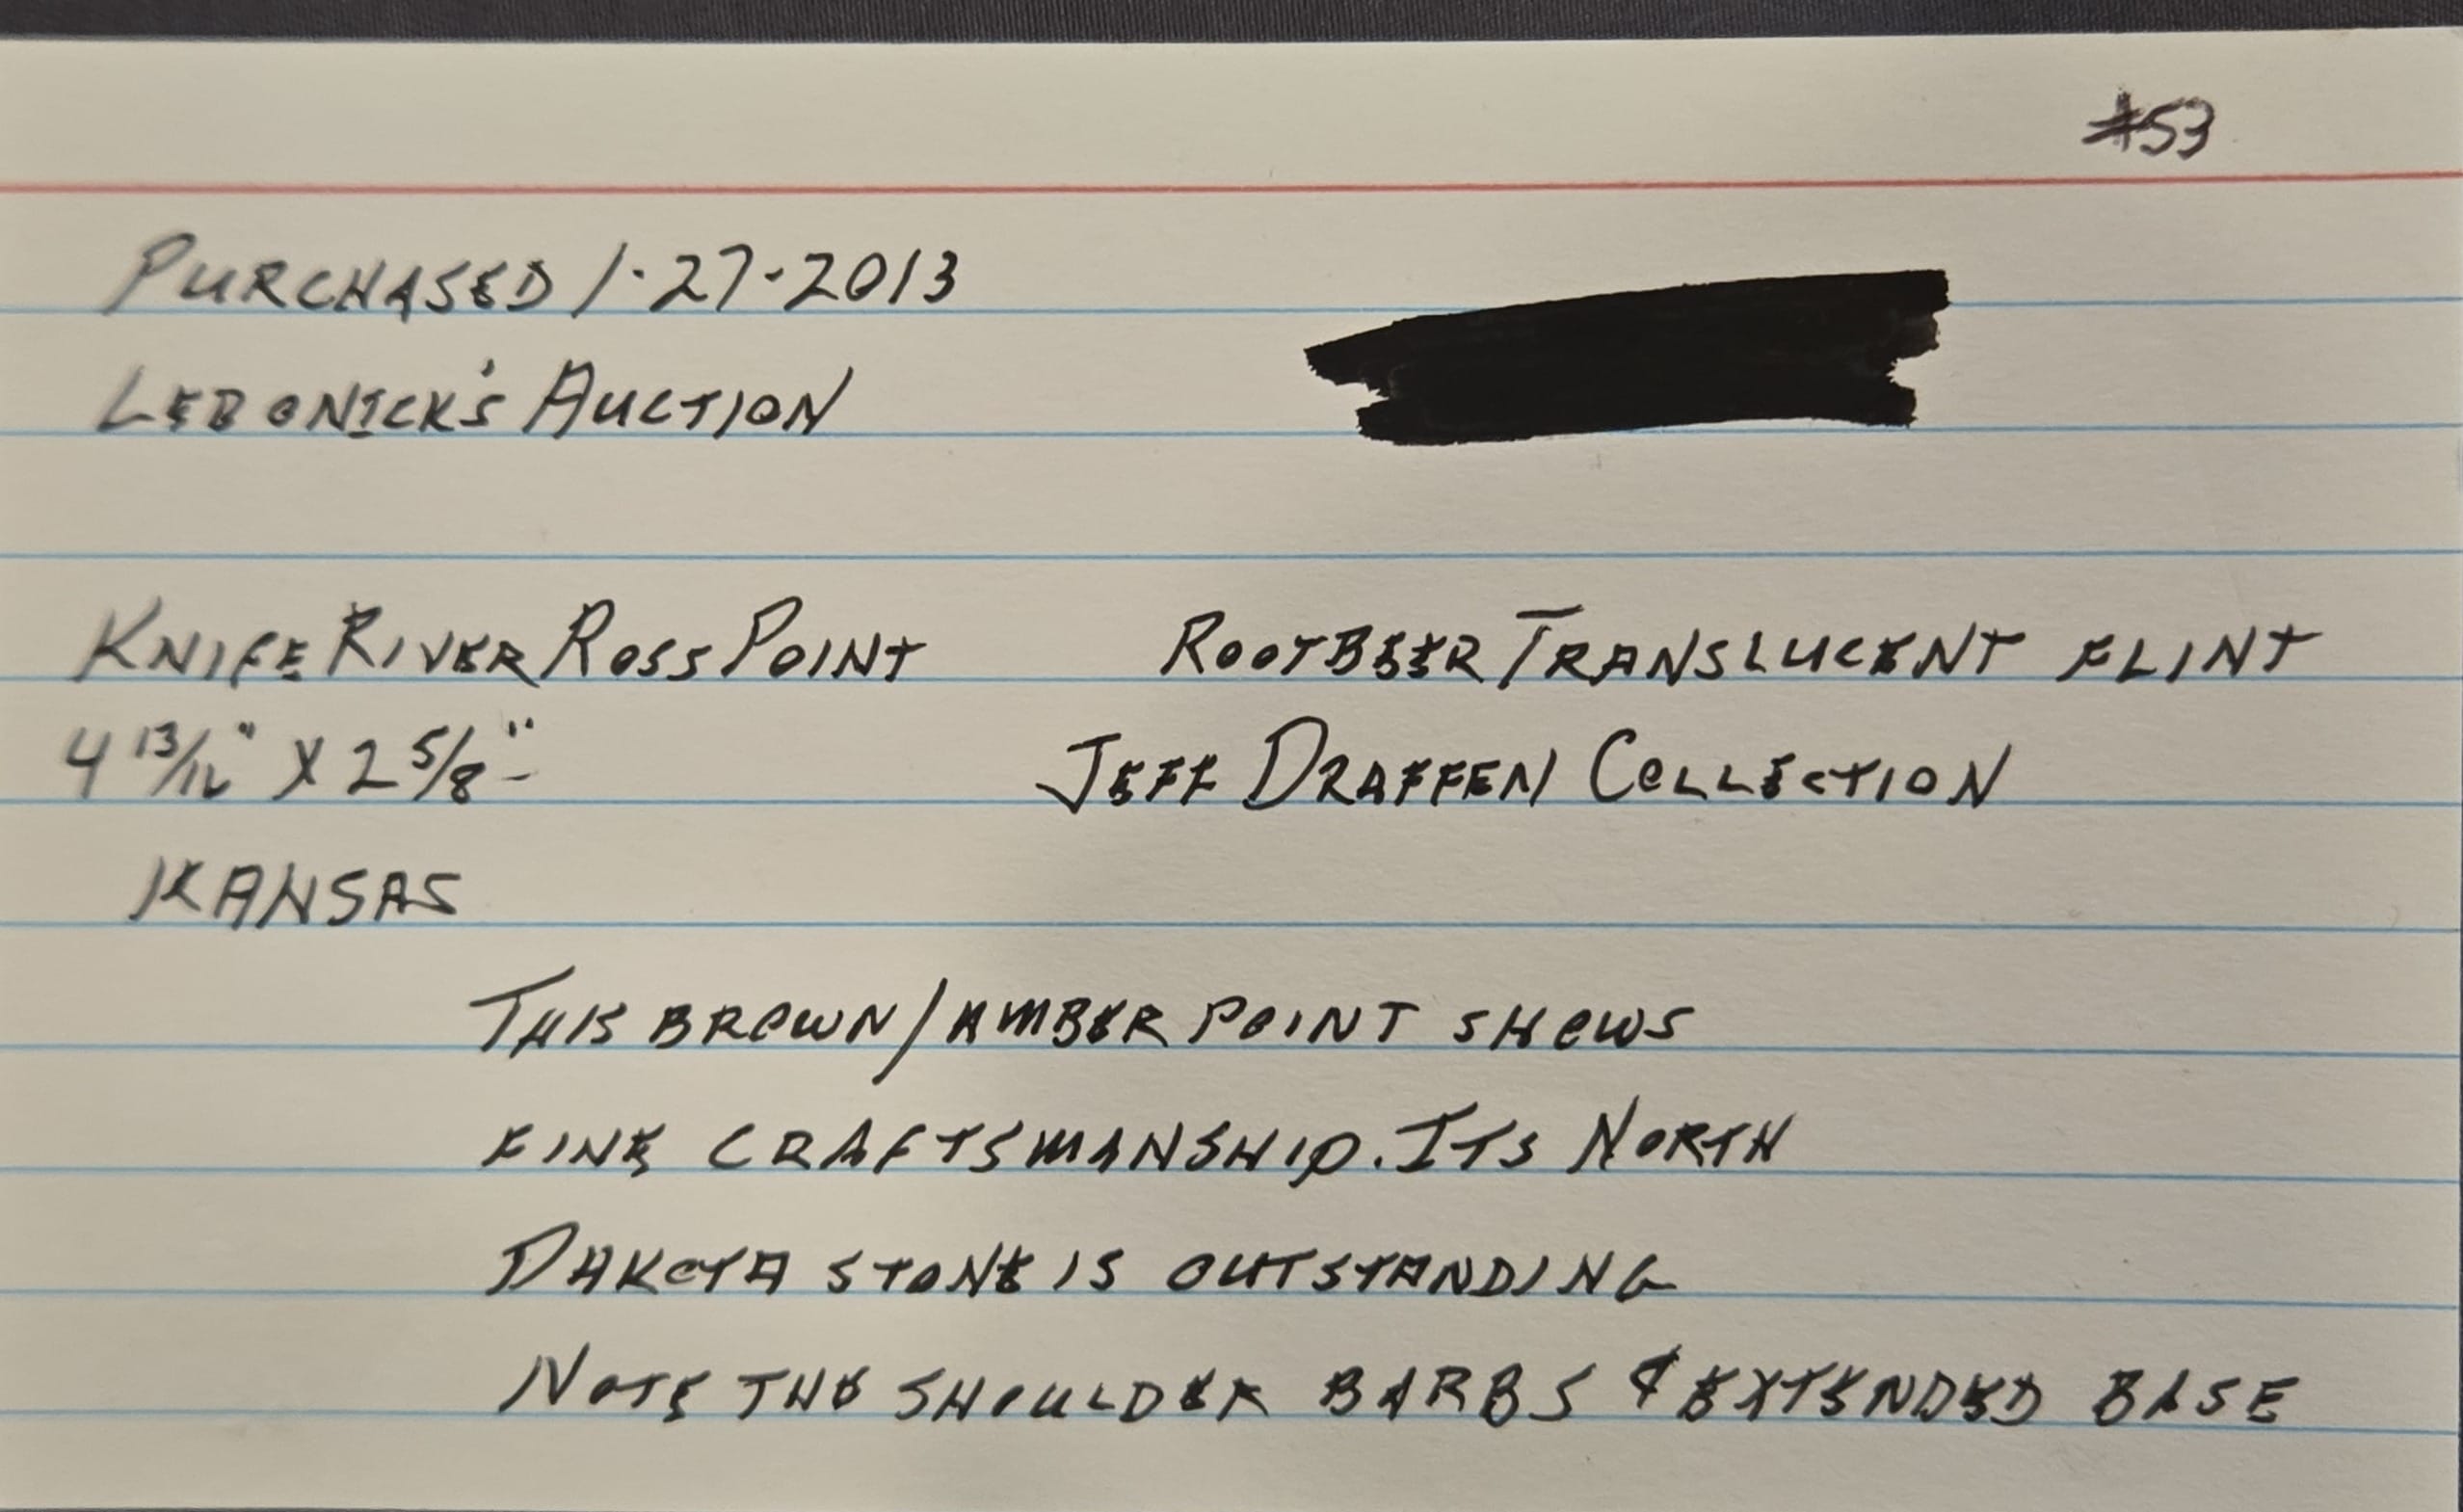 #53
PURCHASED 1·27·2013
LEBONICK'S AUCTION
KNIFE RIVER ROSS POINT ROOTBEER TRANSLUCENT FLINT
4 13/16" X 2 5/8"
JEFF DRAFFEN COLLECTION
KANSAS
THIS BROWN/AMBER POINT SHOWS
FINE CRAFTSMANSHIP. ITS NORTH
DAKOTA STONE IS OUTSTANDING
NOTE THE SHOULDER BARBS & EXTENDED BASE